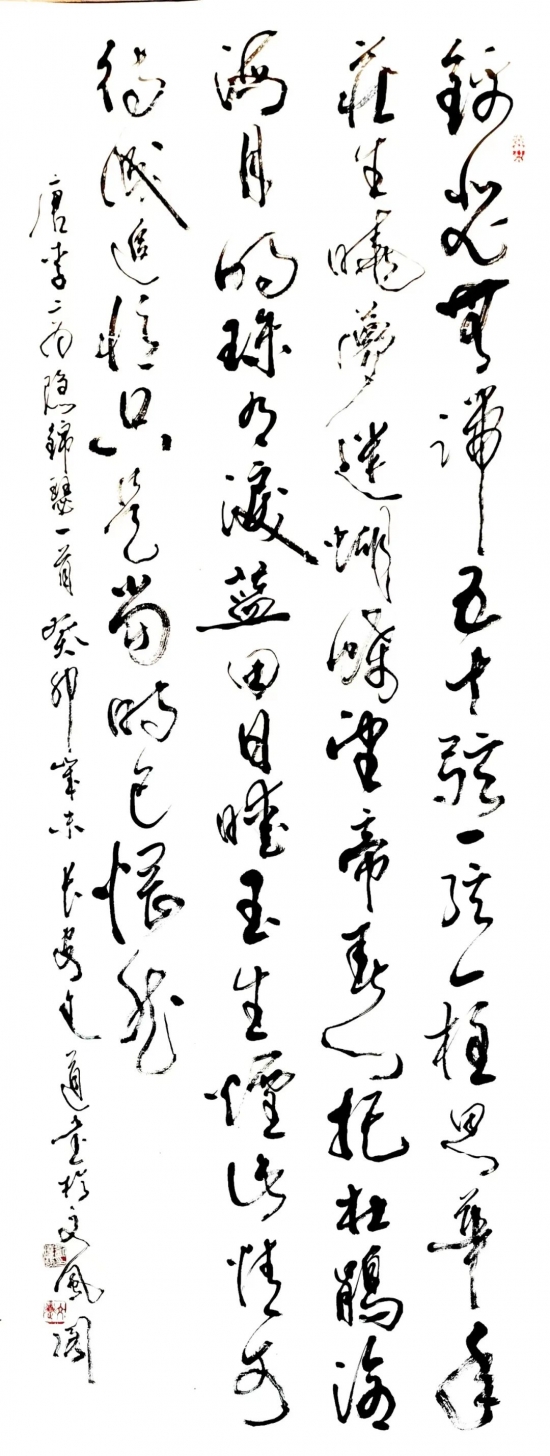 錦瑟無端五十弦一弦一柱思華年
莊生曉夢迷蝴蝶望帝春心托杜鵑滄
海月明珠有淚藍田日暖玉生煙此情可
待成追憶只是當時已惘然
唐李商隱錦瑟一首癸卯歲末長安文道堂於文風閣